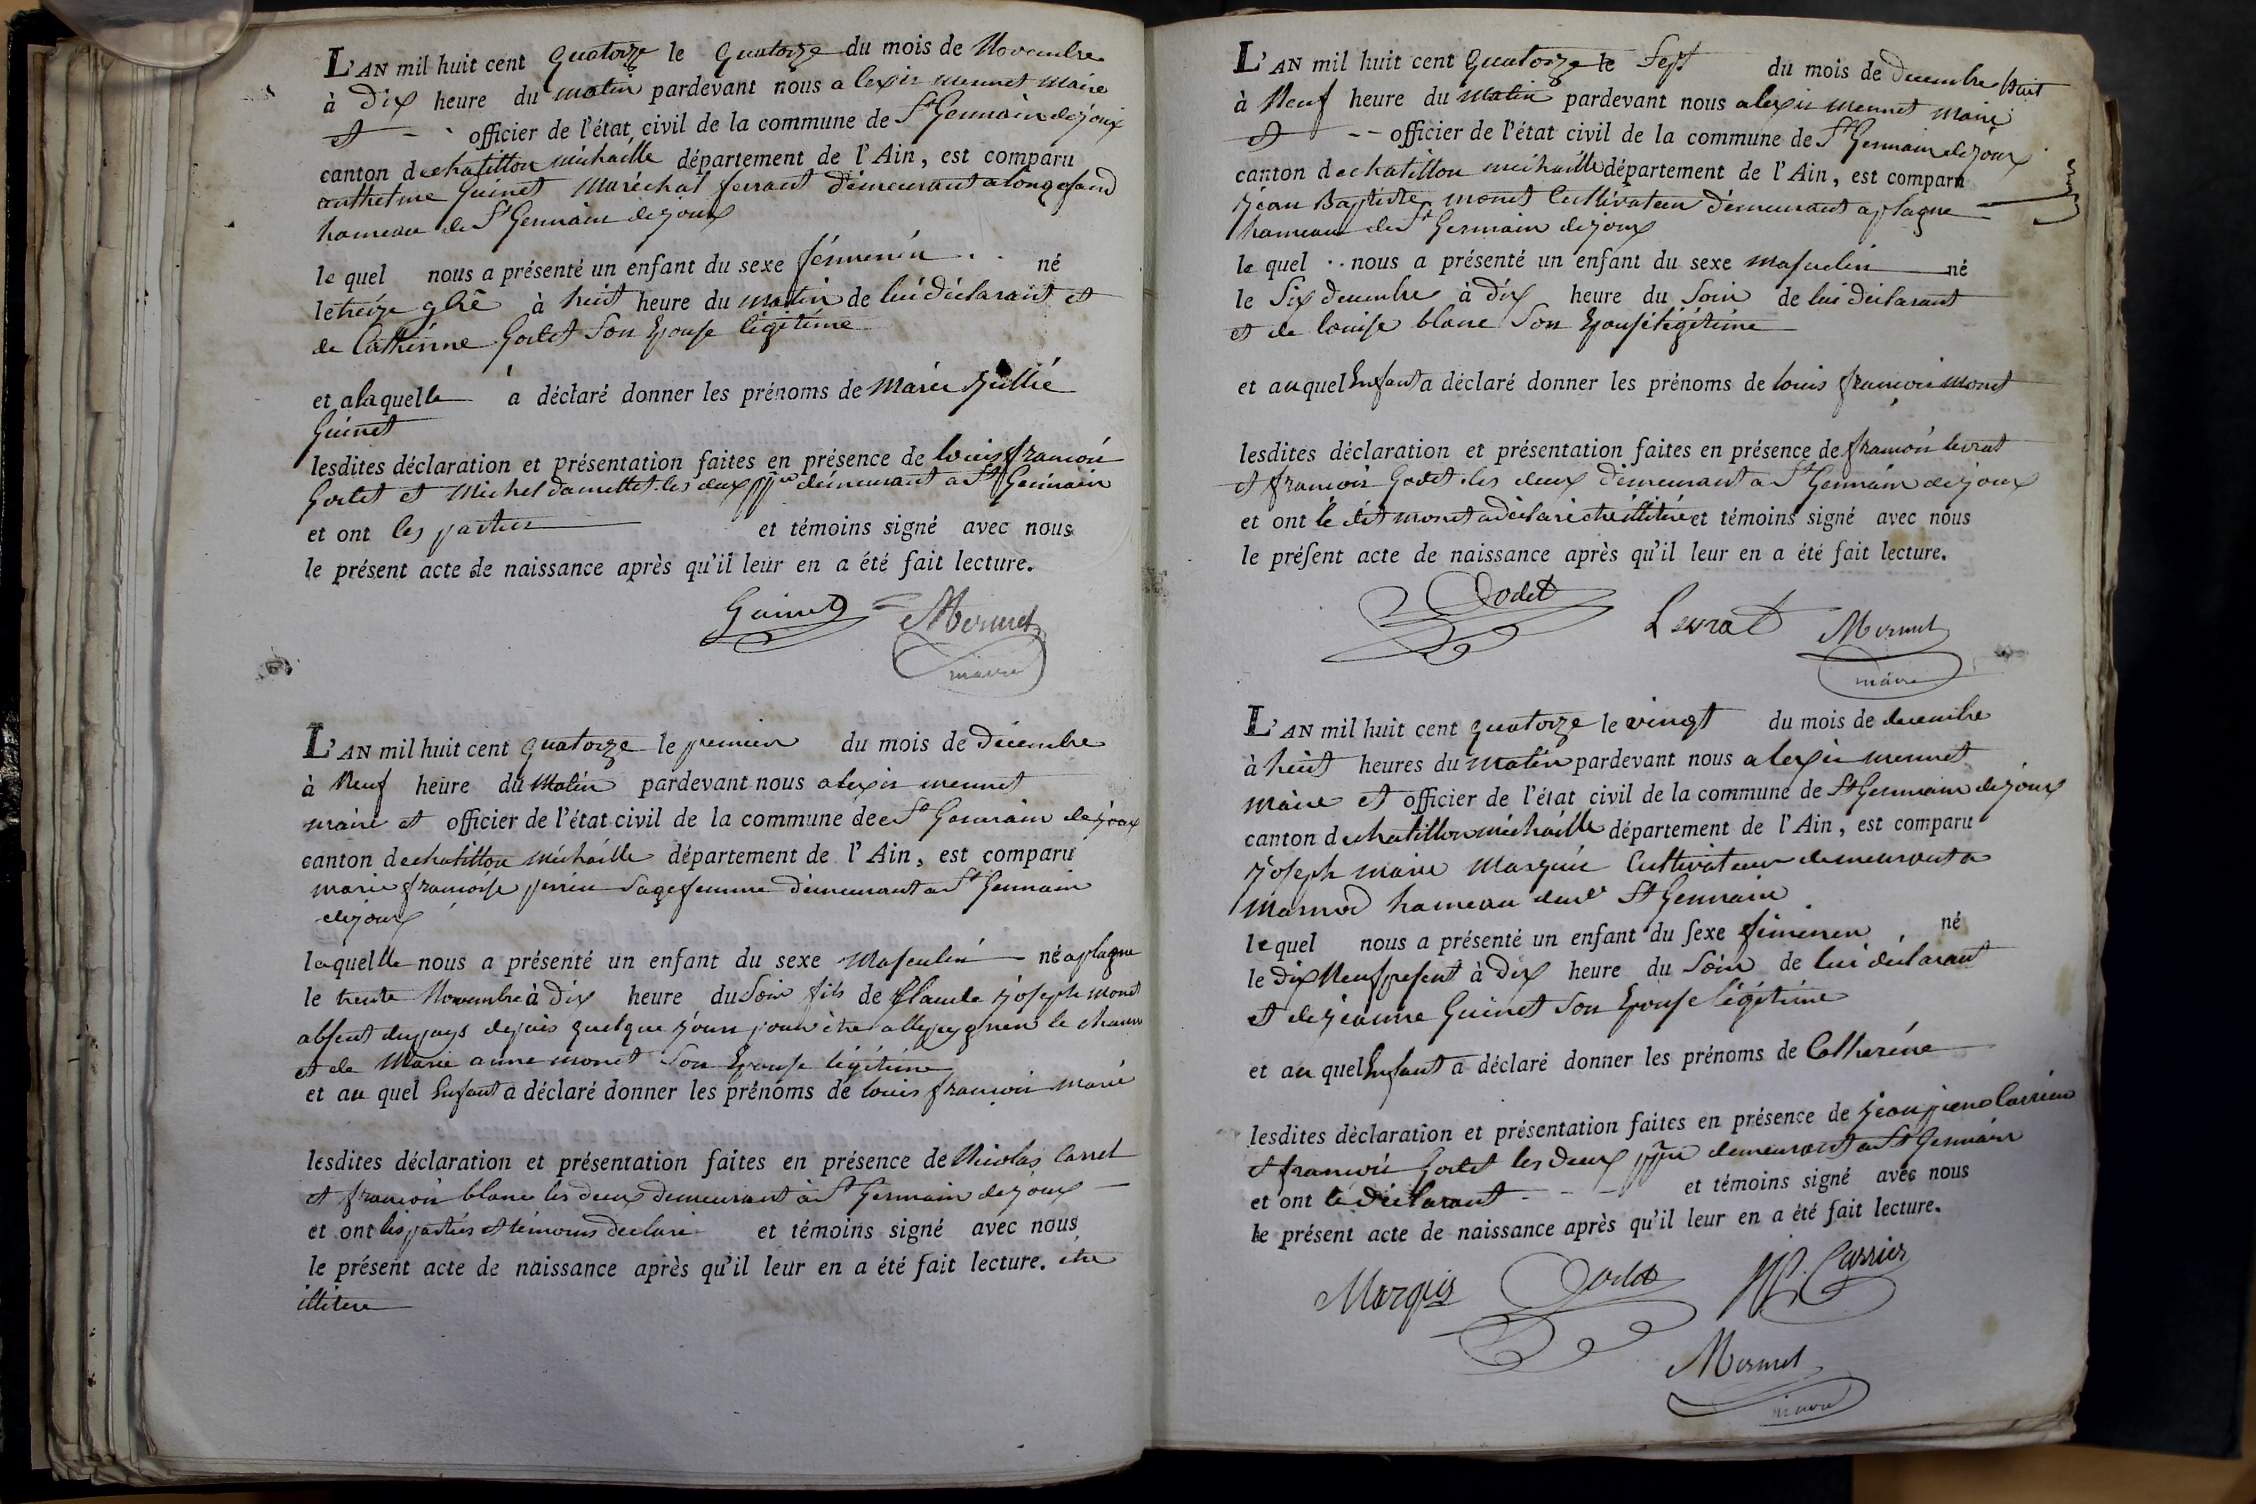 L'AN mil huit cent quatorze le quatorze du mois de Novembre
à Dix heure du matin pardevant nous alexis mermet maire
et officier de l'état civil de la commune de St Germain de joux
canton de chatillon michaille département de l'Ain, est comparu
anthelme Guinet Maréchal ferrant demeurant a longefand
hameau de St Germain de joux
le quel nous a présenté un enfant du sexe féminin né
le treize 9bre à huit heure du matin de lui déclarant et
de Cathérinne Godet Son Epouse légitime
et a laquelle a déclaré donner les prénoms de Marie Jullie
Guinet
lesdites déclaration et présentation faites en présence de louis françois
Godet et Michel les deux demeurant a St Germain
et ont les parties et témoins signé avec nous
le présent acte de naissance après qu'il leur en a été fait lecture.
Guinet Mermet
maire
L'AN mil huit cent quatorze le premier du mois de décembre
à Neuf heure du Matin pardevant nous alexis mermet
maire et officier de l'état civil de la commune de St Germain de joux
canton de chatillon michaille département de l'Ain, est comparu
marie françoise perrin Sage femme demeurant a St Germain
de joux
laquelle nous a présenté un enfant du sexe Masculin né a plagne
le trente Novembre à dix heure du Soir fils de Claude joseph monet
absent du pays depuis quelque jours pour être allé peygner le chanvre
et de Marie anne monet Son Epouse légitime
et au quel Enfant a déclaré donner les prénoms de louis françois marie
lesdites déclaration et présentation faites en présence de Nicolas Carrel
et françois blanc les deux demeurant à St Germain de joux
et ont les parties et témoins declaré et témoins signé avec nous
le présent acte de naissance après qu'il leur en a été fait lecture. etre
illitere
L'AN mil huit cent quatorze le Sept du mois de decembre huit
à Neuf heure du Matin pardevant nous alexis mermet maire
et officier de l'état civil de la commune de St Germain de joux
canton de chatillon michaille département de l'Ain, est comparu
jean Baptiste monet Cultivateur demeurant a plagne
hameau de St Germain de joux
le quel nous a présenté un enfant du sexe masculin né
le Six decembre à dix heure du Soir de lui déclarant
et de louise blanc Son Epouse légitime
et au quel Enfant a déclaré donner les prénoms de louis françois monet
lesdites déclaration et présentation faites en présence de françois levrat
et françois Godet les deux demeurant a St Germain de joux
et ont le dit monet a déclaré etre illitere et témoins signé avec nous
le présent acte de naissance après qu'il leur en a été fait lecture.
Godet Levrat Mermet
maire
L'AN mil huit cent quatorze le vingt du mois de decembre
à huit heures du matin pardevant nous alexis mermet
maire et officier de l'état civil de la commune de St Germain de joux
canton de chatillon michaille département de l'Ain, est comparu
joseph marie Marquis Cultivateur demeurant a
marnod hameau dud St Germain
le quel nous a présenté un enfant du sexe féminin né
le dix Neuf présent à Dix heure du Soir de lui déclarant
et de jeanne Guinet Son Epouse légitime
et au quel Enfant a déclaré donner les prénoms de Catherine
lesdites déclaration et présentation faites en présence de jean pierre Carrier
et françois Godet les deux demeurant a St Germain
et ont le déclarant et témoins signé avec nous
le présent acte de naissance après qu'il leur en a été fait lecture.
Marquis Godet JP. Carrier
Mermet
maire